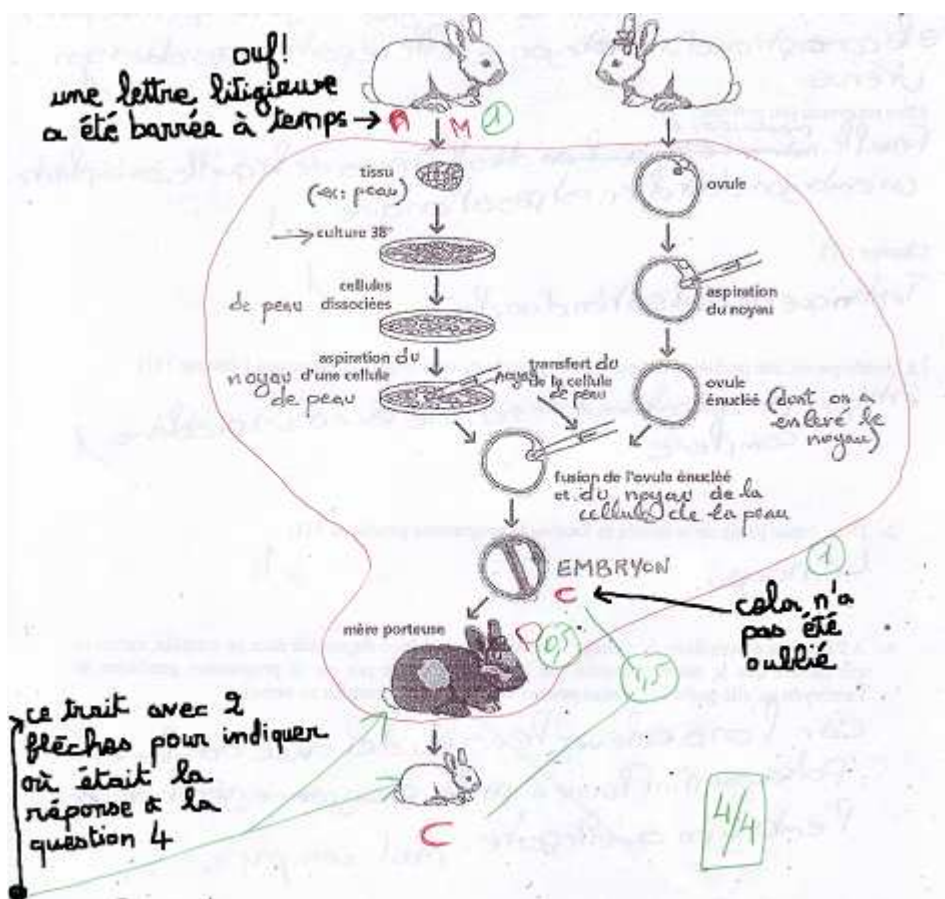 ouf!
une lettre litigieuse
a été barrée à temps →
A M 1
tissu
(ex: peau)
culture 38°
de peau
cellules
dissociées
aspiration du
noyau d'une cellule
de peau
ovule
aspiration
du noyau
transfert du
noyau de la cellule
de peau
ovule
énucléé (dont on a
enlevé le
noyau)
fusion de l'ovule énucléé
et du noyau de la
cellule de la peau
EMBRYON
C
1
cela n'a
pas été
oublié
mère porteuse
P 0,5
1,5
ce trait avec 2
flèches pour indiquer
où était la
réponse à la
question 4
C
4/4